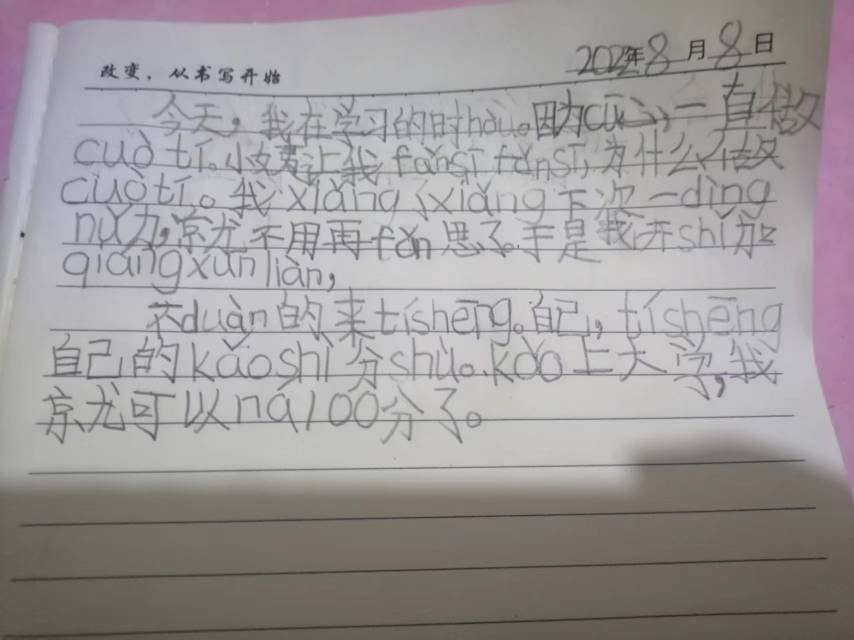 改变,从书写开始
2022年8月8日
今天,我在学习的时hòu。因为cū心,一直做
cuò tí。小麦让我fǎnsī fǎnsī,为什么做
cuòtí。我xiǎng了xiǎng下次一dìng
nǔ力,京尤不用再fǎn思了。于是我开shǐ加
qiángxùnliàn,
不duàn的来tíshēng。自己,tíshēng
自己的kǎoshì分shù。kǎo上大学,我
京尤可以ná100分了。